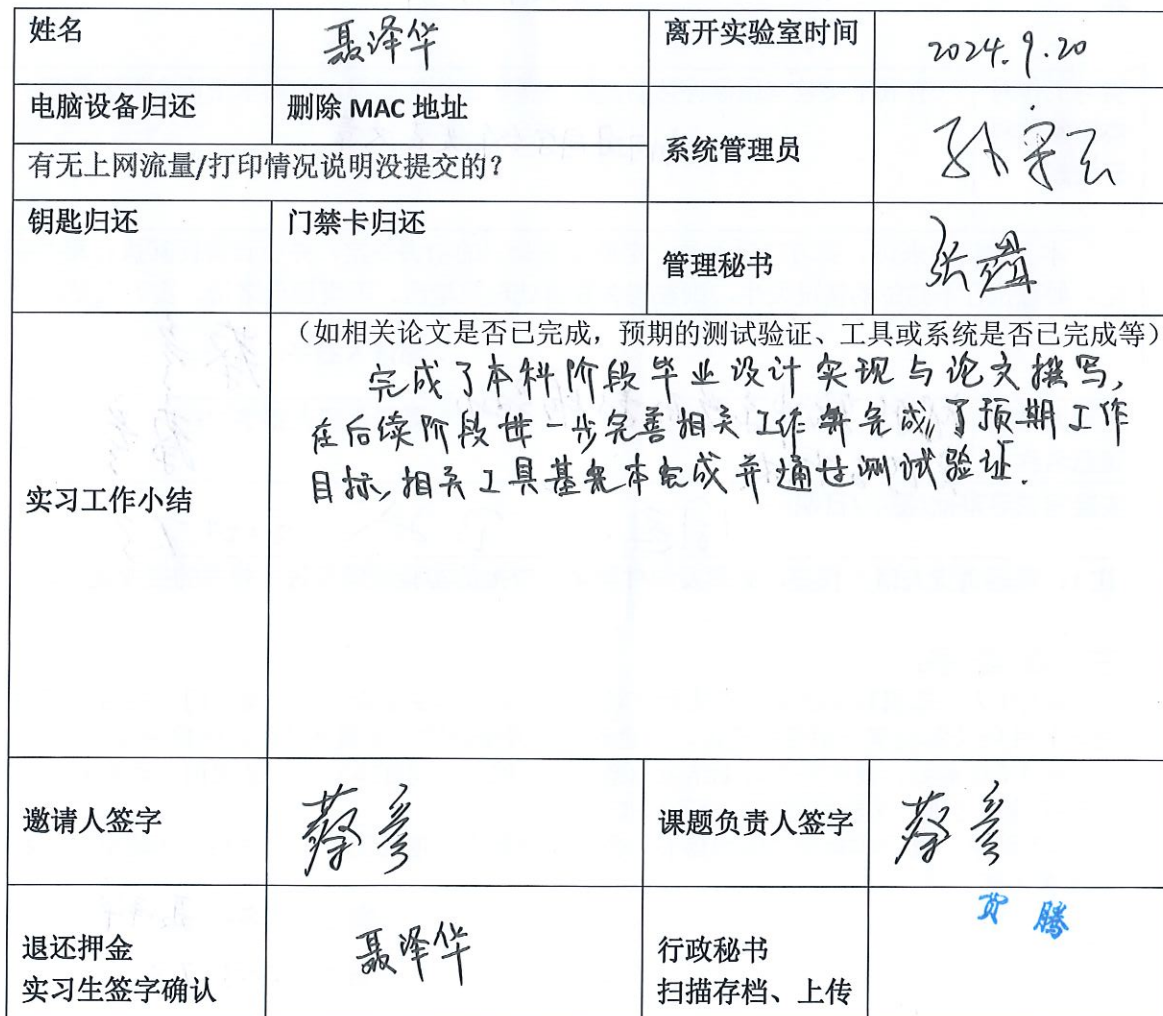 姓名 聂泽华 离开实验室时间 2024.9.20
电脑设备归还 删除 MAC 地址
系统管理员
有无上网流量/打印情况说明没提交的?
钥匙归还 门禁卡归还
管理秘书
(如相关论文是否已完成,预期的测试验证、工具或系统是否已完成等)
完成了本科阶段毕业设计实现与论文撰写,
在后续阶段进一步完善相关工作并完成了预期工作
目标,相关工具基本完成并通过测试验证.
实习工作小结
邀请人签字 蔡彦 课题负责人签字 蔡彦
退还押金
实习生签字确认 聂泽华
行政秘书
扫描存档、上传
贺腾